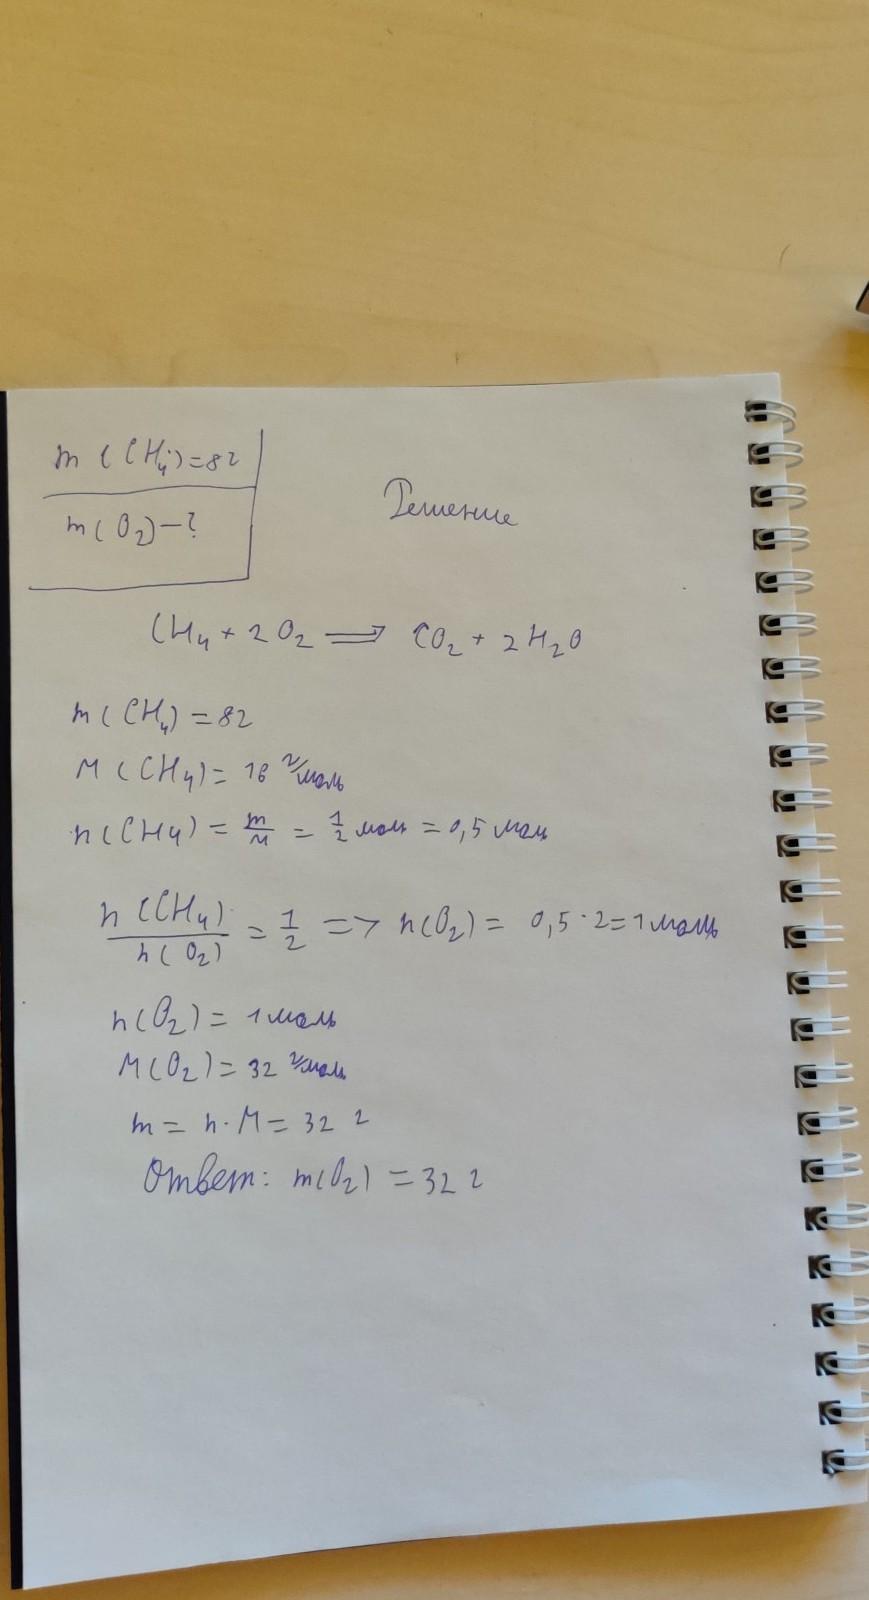 m (CH₄) = 8 г
m(O₂) — ?
Решение
CH₄ + 2O₂ ⟹ CO₂ + 2H₂O
m (CH₄) = 8 г
M (CH₄) = 16 г/моль
n (CH₄) = m/M = 1/2 моль = 0,5 моль
n (CH₄) / n (O₂) = 1/2 => n(O₂) = 0,5 · 2 = 1 моль
n(O₂) = 1 моль
M(O₂) = 32 г/моль
m = n · M = 32 г
Ответ: m(O₂) = 32 г